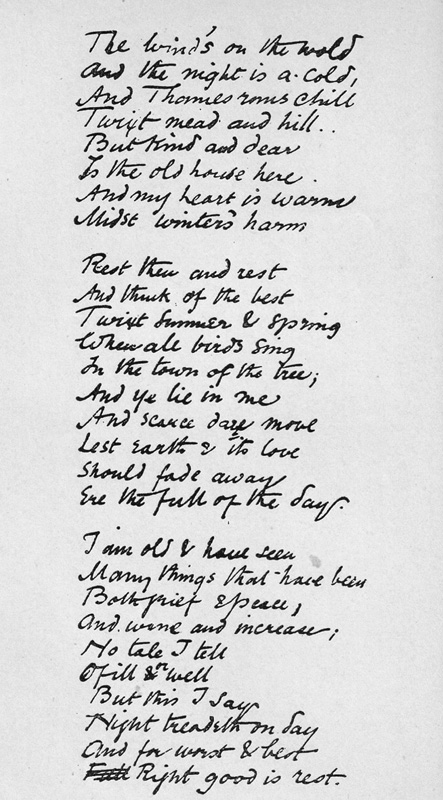 The wind's on the wold
And the night is a-cold,
And Thames runs chill
Twixt mead and hill..
But kind and dear
Is the old house here.
And my heart is warm
Midst winter's harm
Rest then and rest
And think of the best
Twixt summer & spring
When all birds sing
In the town of the tree;
And ye lie in me
And scarce dare move
Lest earth & its love
Should fade away
Ere the full of the day.
I am old & have seen
Many things that have been
Both grief & peace,
And wane and increase;
No tale I tell
Of ill or well
But this I say
Night treadeth on day
And for worst & best
Right good is rest.